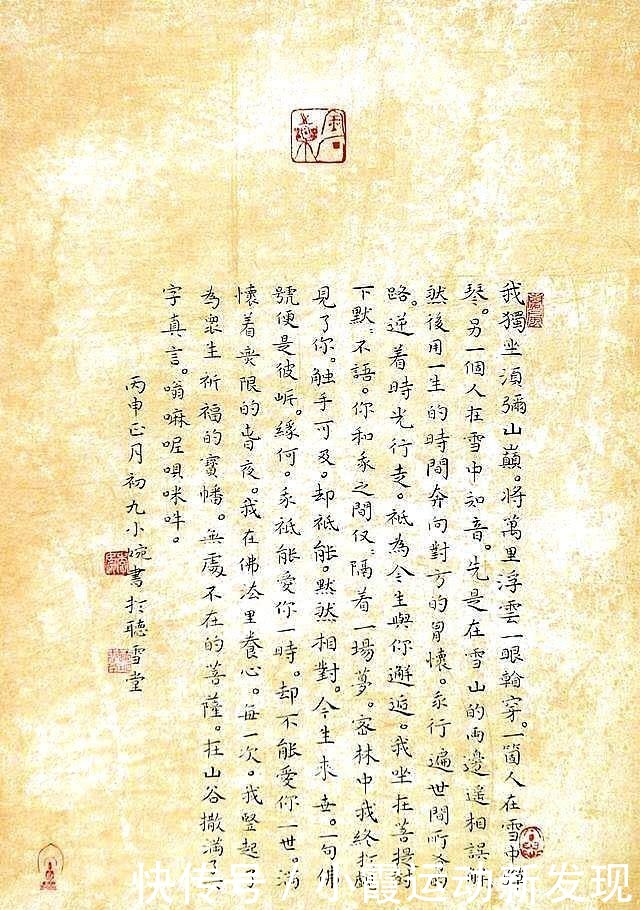 我獨坐須彌山巔。將萬里浮雲一眼看穿。一箇人在雪中彈
琴。另一個人在雪中知音。先是在雪山的兩邊遙相誤解
然後用一生的時間奔向對方的胷懷。我行遍世間所有的
路。逆着時光行走。祇為今生與你邂逅。我坐在菩提樹
下默:不語。你和我之間仅:隔着一場夢。密林中我終於
見了你。触手可及。却祇能。默然相對。今生來世。一句佛
號便是彼岍。緣何。我祇能愛你一時。却不能愛你一世。滿
懷着無限的夜。我在佛法里養心。每一次。我豎起了
為衆生祈福的寳幡。無處不在的菩薩。在山谷撒滿了六
字真言。嗡嘛呢唄咪吽。
丙申正月初九小碗書於聽雪堂
快传号/小霞运动新发现